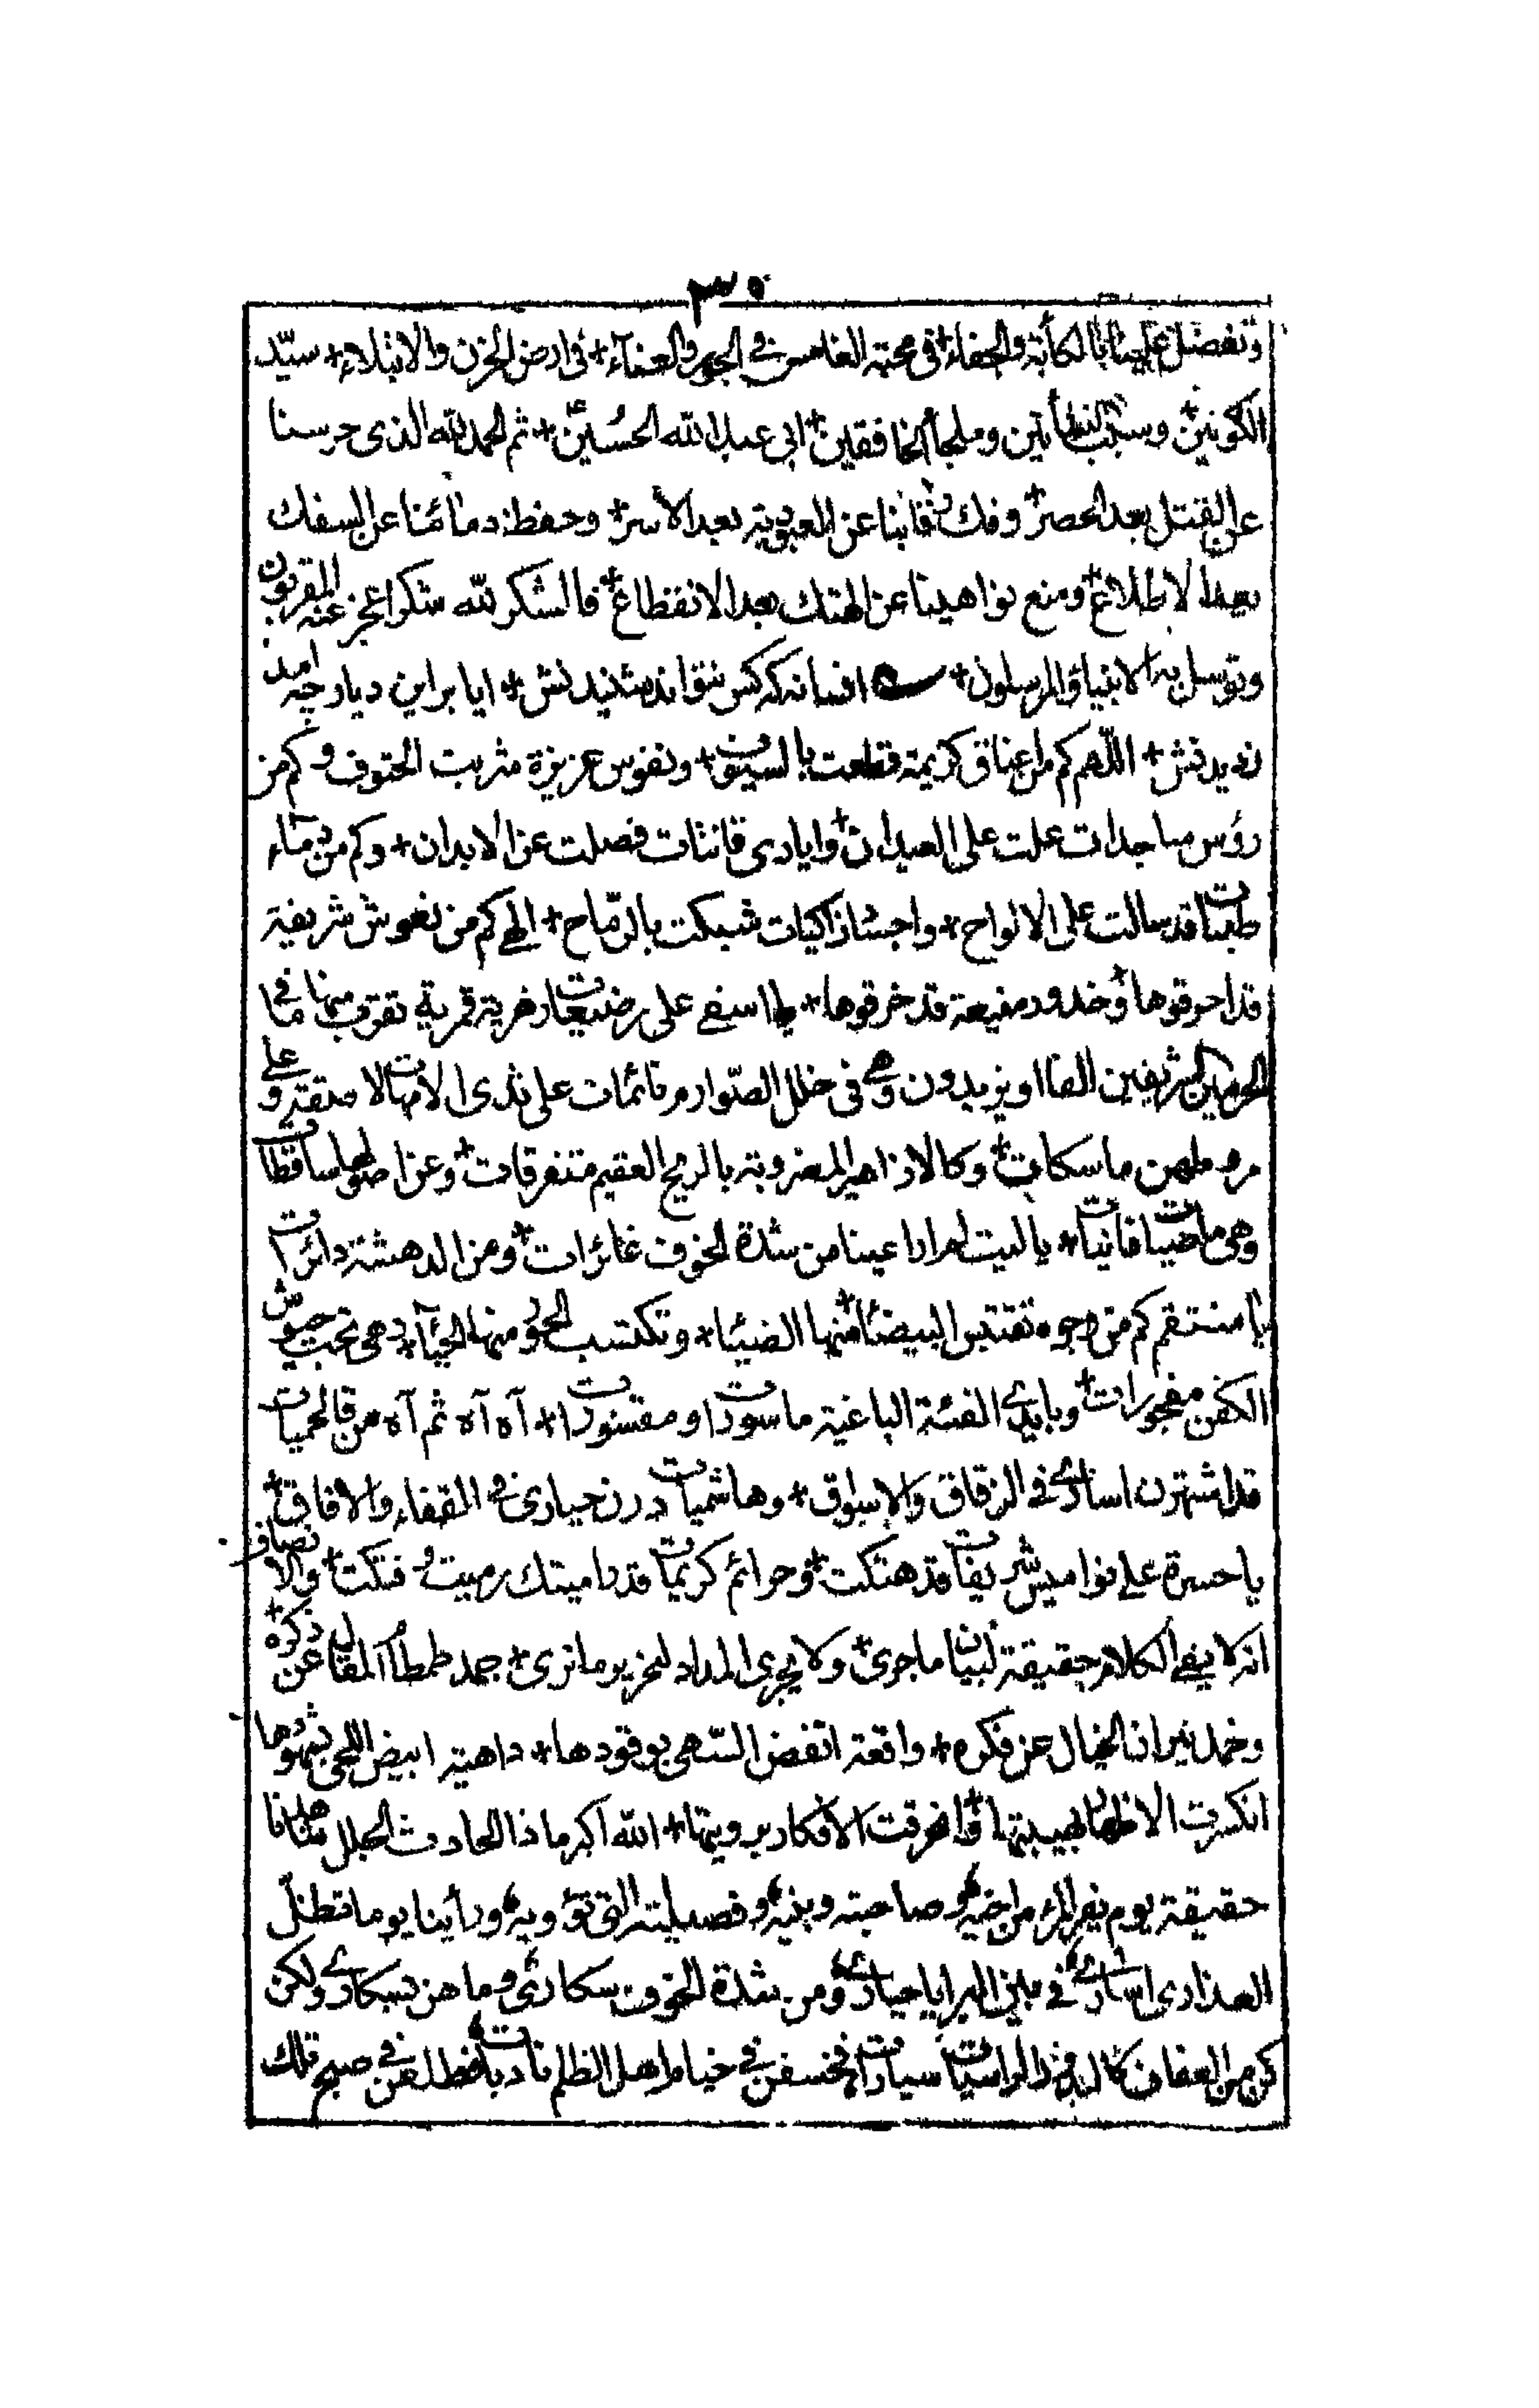 ٣٠
وتفضل علينا بالكأبة والجفاء+ فى محبته الغامس فى الجور والعناء+ فى ارض الحزن والابتلاء+ سيّد
الكونين+ وسبب النشأتين وملجأ الخافقين+ ابى عبد الله الحسين+ ثم الحمد لله الذى حرسنا
عن القتل بعد الحصر+ وفك رقابنا عن العبودية بعد الاسر+ وحفظ دمائنا عن السفك
بعد الاطلاع+ ومنع نواهيدنا عن الهتك بعد الانقطاع+ فالشكر لله شكرا عجز عنه المقربون
وتوسل به الانبياء والمرسلون+ افسانه كه كس نتواند شنيدنش+ ايا براين ديار چه امد
نديدنش+ اللهم كم من اعناق كريمة قطعت بالسيوف+ ونفوس عزيزة شربت الحتوف وكم من
رؤس ساجدات علت على العيدان+ وايادى قانتات فصلت عن الابدان+ وكم من دماء
طيبات قد سالت على الالواح+ واجساد زاكيات شبكت بالرماح+ الهى كم من نعوش شريفة
قد احرقوها+ وخدود منيعة قد خرقوها+ يا اسفى على رضيعات قمرية تقرب منها ما فى
الحرمين الشريفين الفا او يزيدون وهى فى خلل الصوارم نائمات على ثدى الامهات لا مقتدرة على
ماسكات+ وكالازاهير المضروبة بالريح العقيم متفرقات+ وعن اصولها ساقطات
وهى ماضيات فانيات+ يا ليت لم ار اعينا من شدة الخوف غائرات+ ومن الدهشة دائرات
يا منتقم كم من وجوه تقتبس البيضاء منها الضياء+ وتكتسب الحور منها الحياء+ هى تحت
الكفن مفجورات+ وبايدى الفئة الباغية ماسورات او مقسورات+ آه آه ثم آه من
قد اشتهرن اسارى فى الزقاق والاسواق+ وهاشميات درن حيارى فى القفار والافاق+
يا حسرة على نواميس شريفات قد هتكت+ وحرائم كريمات قد فتكت+ والانصاف
انه لا يفى الكلام حقيقة لبيان ما جرى+ ولا يجرى المداد لتحرير ما نرى+ جمد طمطام المقال عن ذكره+
وخمد نيران الخيال عن فكره+ واقعة انفض السهى بوقودها+ داهية ابيض اللحى بشهودها
انكسرت الاظهار بهيبتها+ وانحرقت الافكار برويتها+ الله اكبر ماذا الحادث الجلل
حقيقة يوم يفر المرء من اخيه وصاحبته وبنيه وفصيلته التى تؤويه ورأينا يوما تظل
العذارى اسارى فى بين البرايا حيارى ومن شدة الخوف سكارى وما هن بسكارى ولكن
كن من العفاف كالبدور انخسفن فى خيام اهل الظلم فطلعن فى صبح تلك